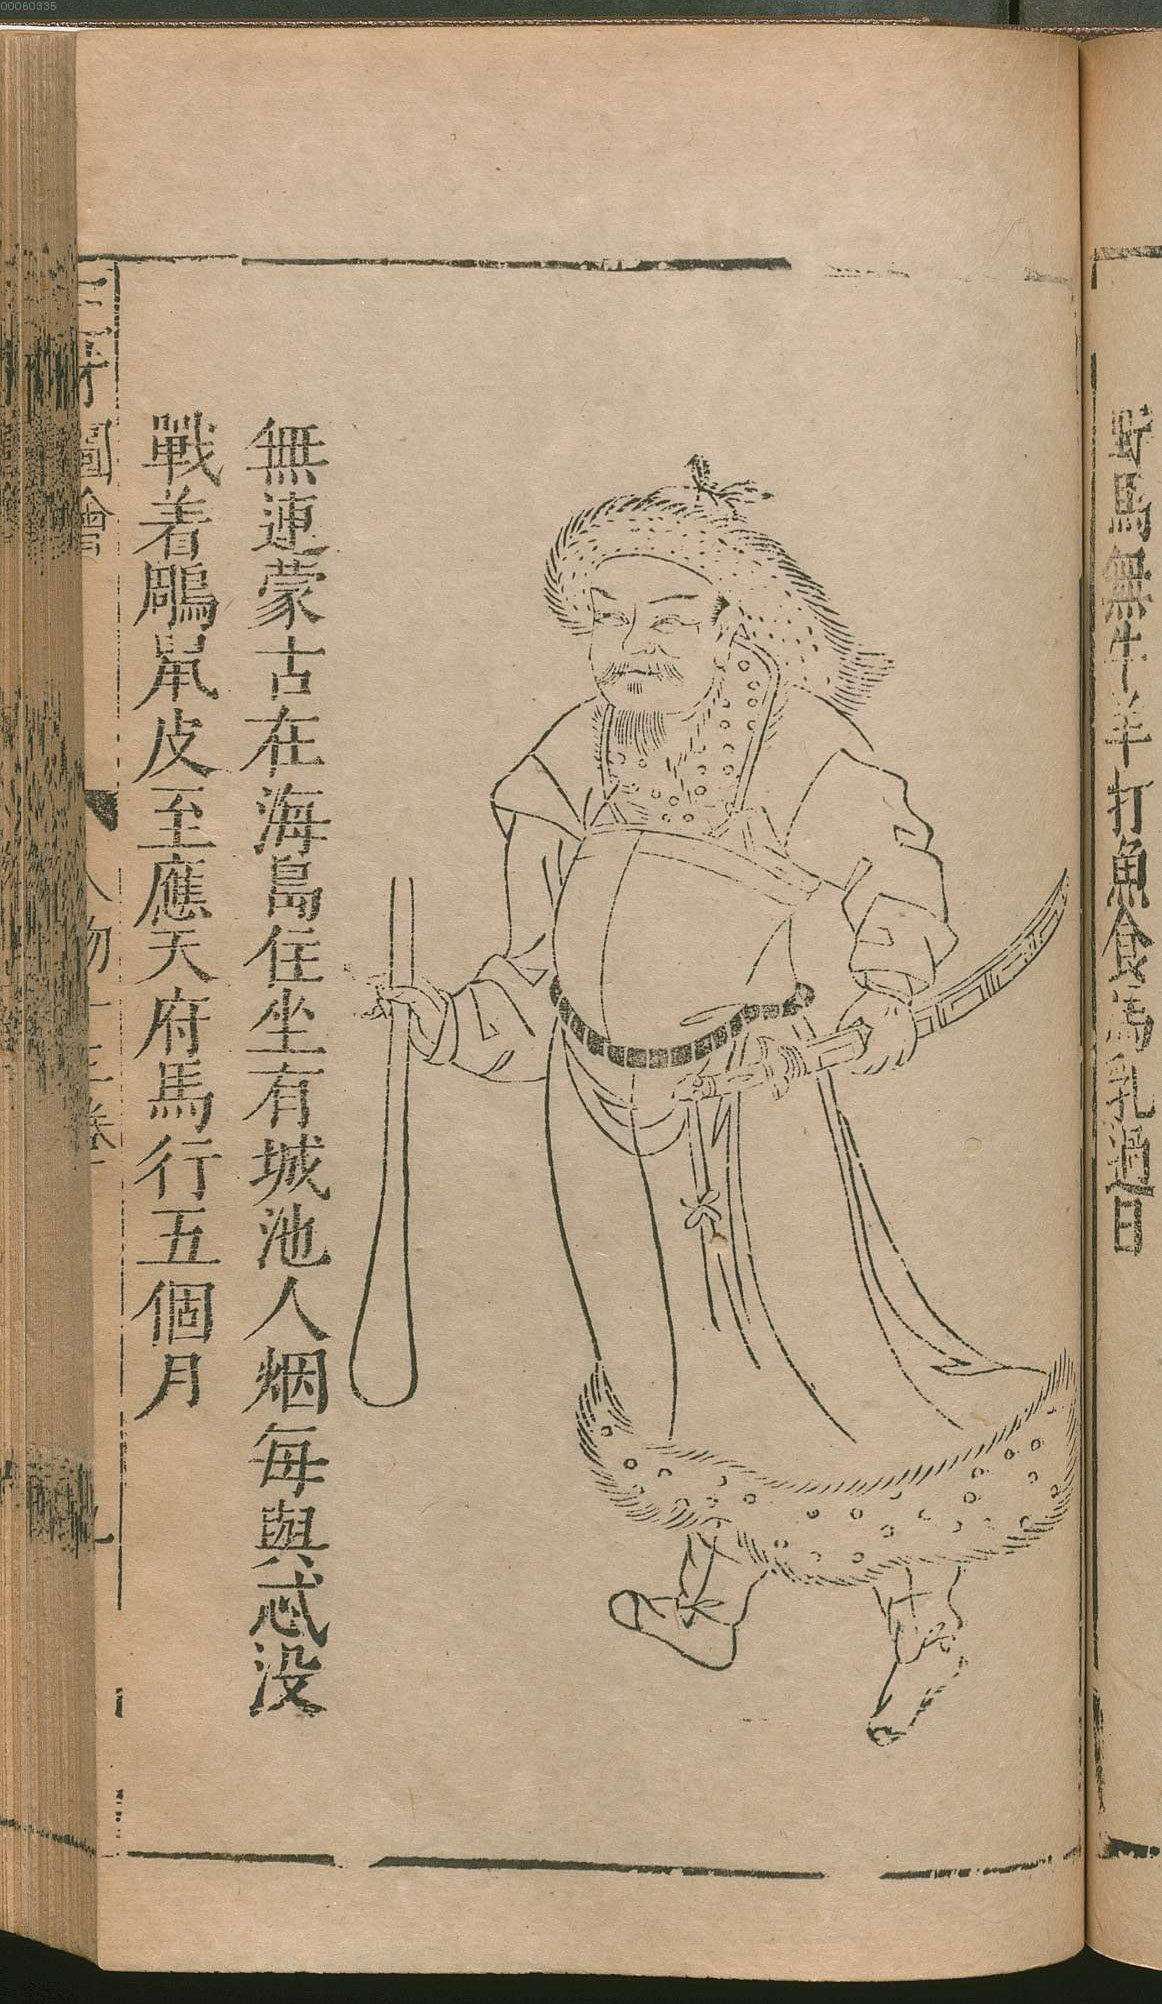 00060335
野馬無牛羊打魚食馬乳過日
無連蒙古在海島住坐有城池人烟每與忒没
戰着鵰䑕皮至應天府馬行五個月
三才圖會 人物十三卷 九